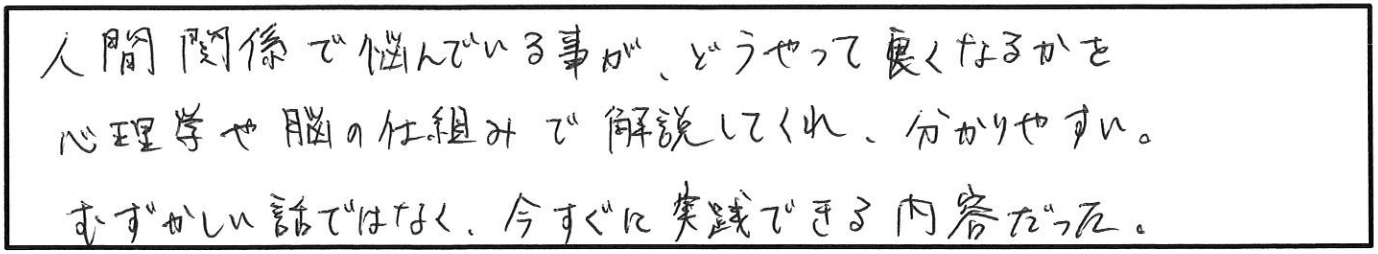 人間関係で悩んでいる事が、どうやって良くなるかを
心理学や脳の仕組みで解説してくれ、分かりやすい。
むずかしい話ではなく、今すぐに実践できる内容だった。